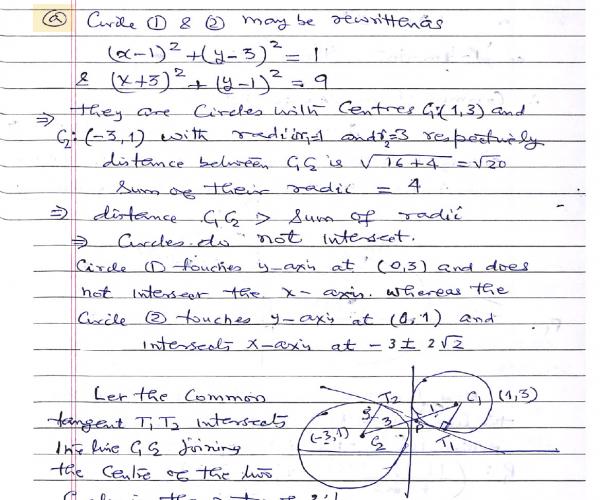 (a) Circle (1) & (2) may be rewritten as
(x-1)² + (y-3)² = 1
& (x+3)² + (y-1)² = 9
⇒ they are Circles with Centres C₁:(1,3) and
C₂:(-3,1) with radii r₁=1 and r₂=3 respectively
distance between C₁C₂ is √16+4 = √20
Sum of their radii = 4
⇒ distance C₁C₂ > Sum of radii
⇒ Circles do not intersect.
Circle (1) touches y-axis at (0,3) and does
not intersect the x-axis. Whereas the
Circle (2) touches y-axis at (0,1) and
intersects x-axis at -3 ± 2√2
Let the Common
tangent T₁T₂ intersects
line C₁C₂ joining
the Centre of the two
T₂
C₁
(1,3)
3
1
3
P
(-3,1)
C₂
T₁